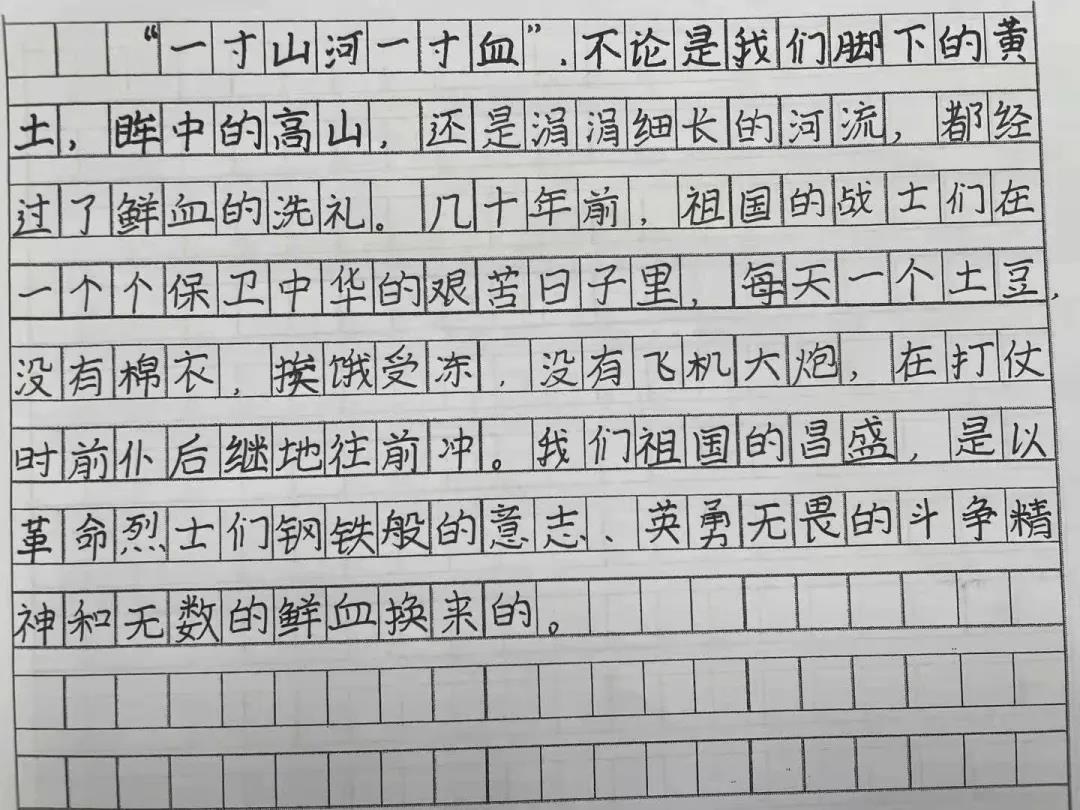 “一寸山河一寸血”，不论是我们脚下的黄
土，眸中的高山，还是涓涓细长的河流，都经
过了鲜血的洗礼。几十年前，祖国的战士们在
一个个保卫中华的艰苦日子里，每天一个土豆，
没有棉衣，挨饿受冻，没有飞机大炮，在打仗
时前仆后继地往前冲。我们祖国的昌盛，是以
革命烈士们钢铁般的意志、英勇无畏的斗争精
神和无数的鲜血换来的。